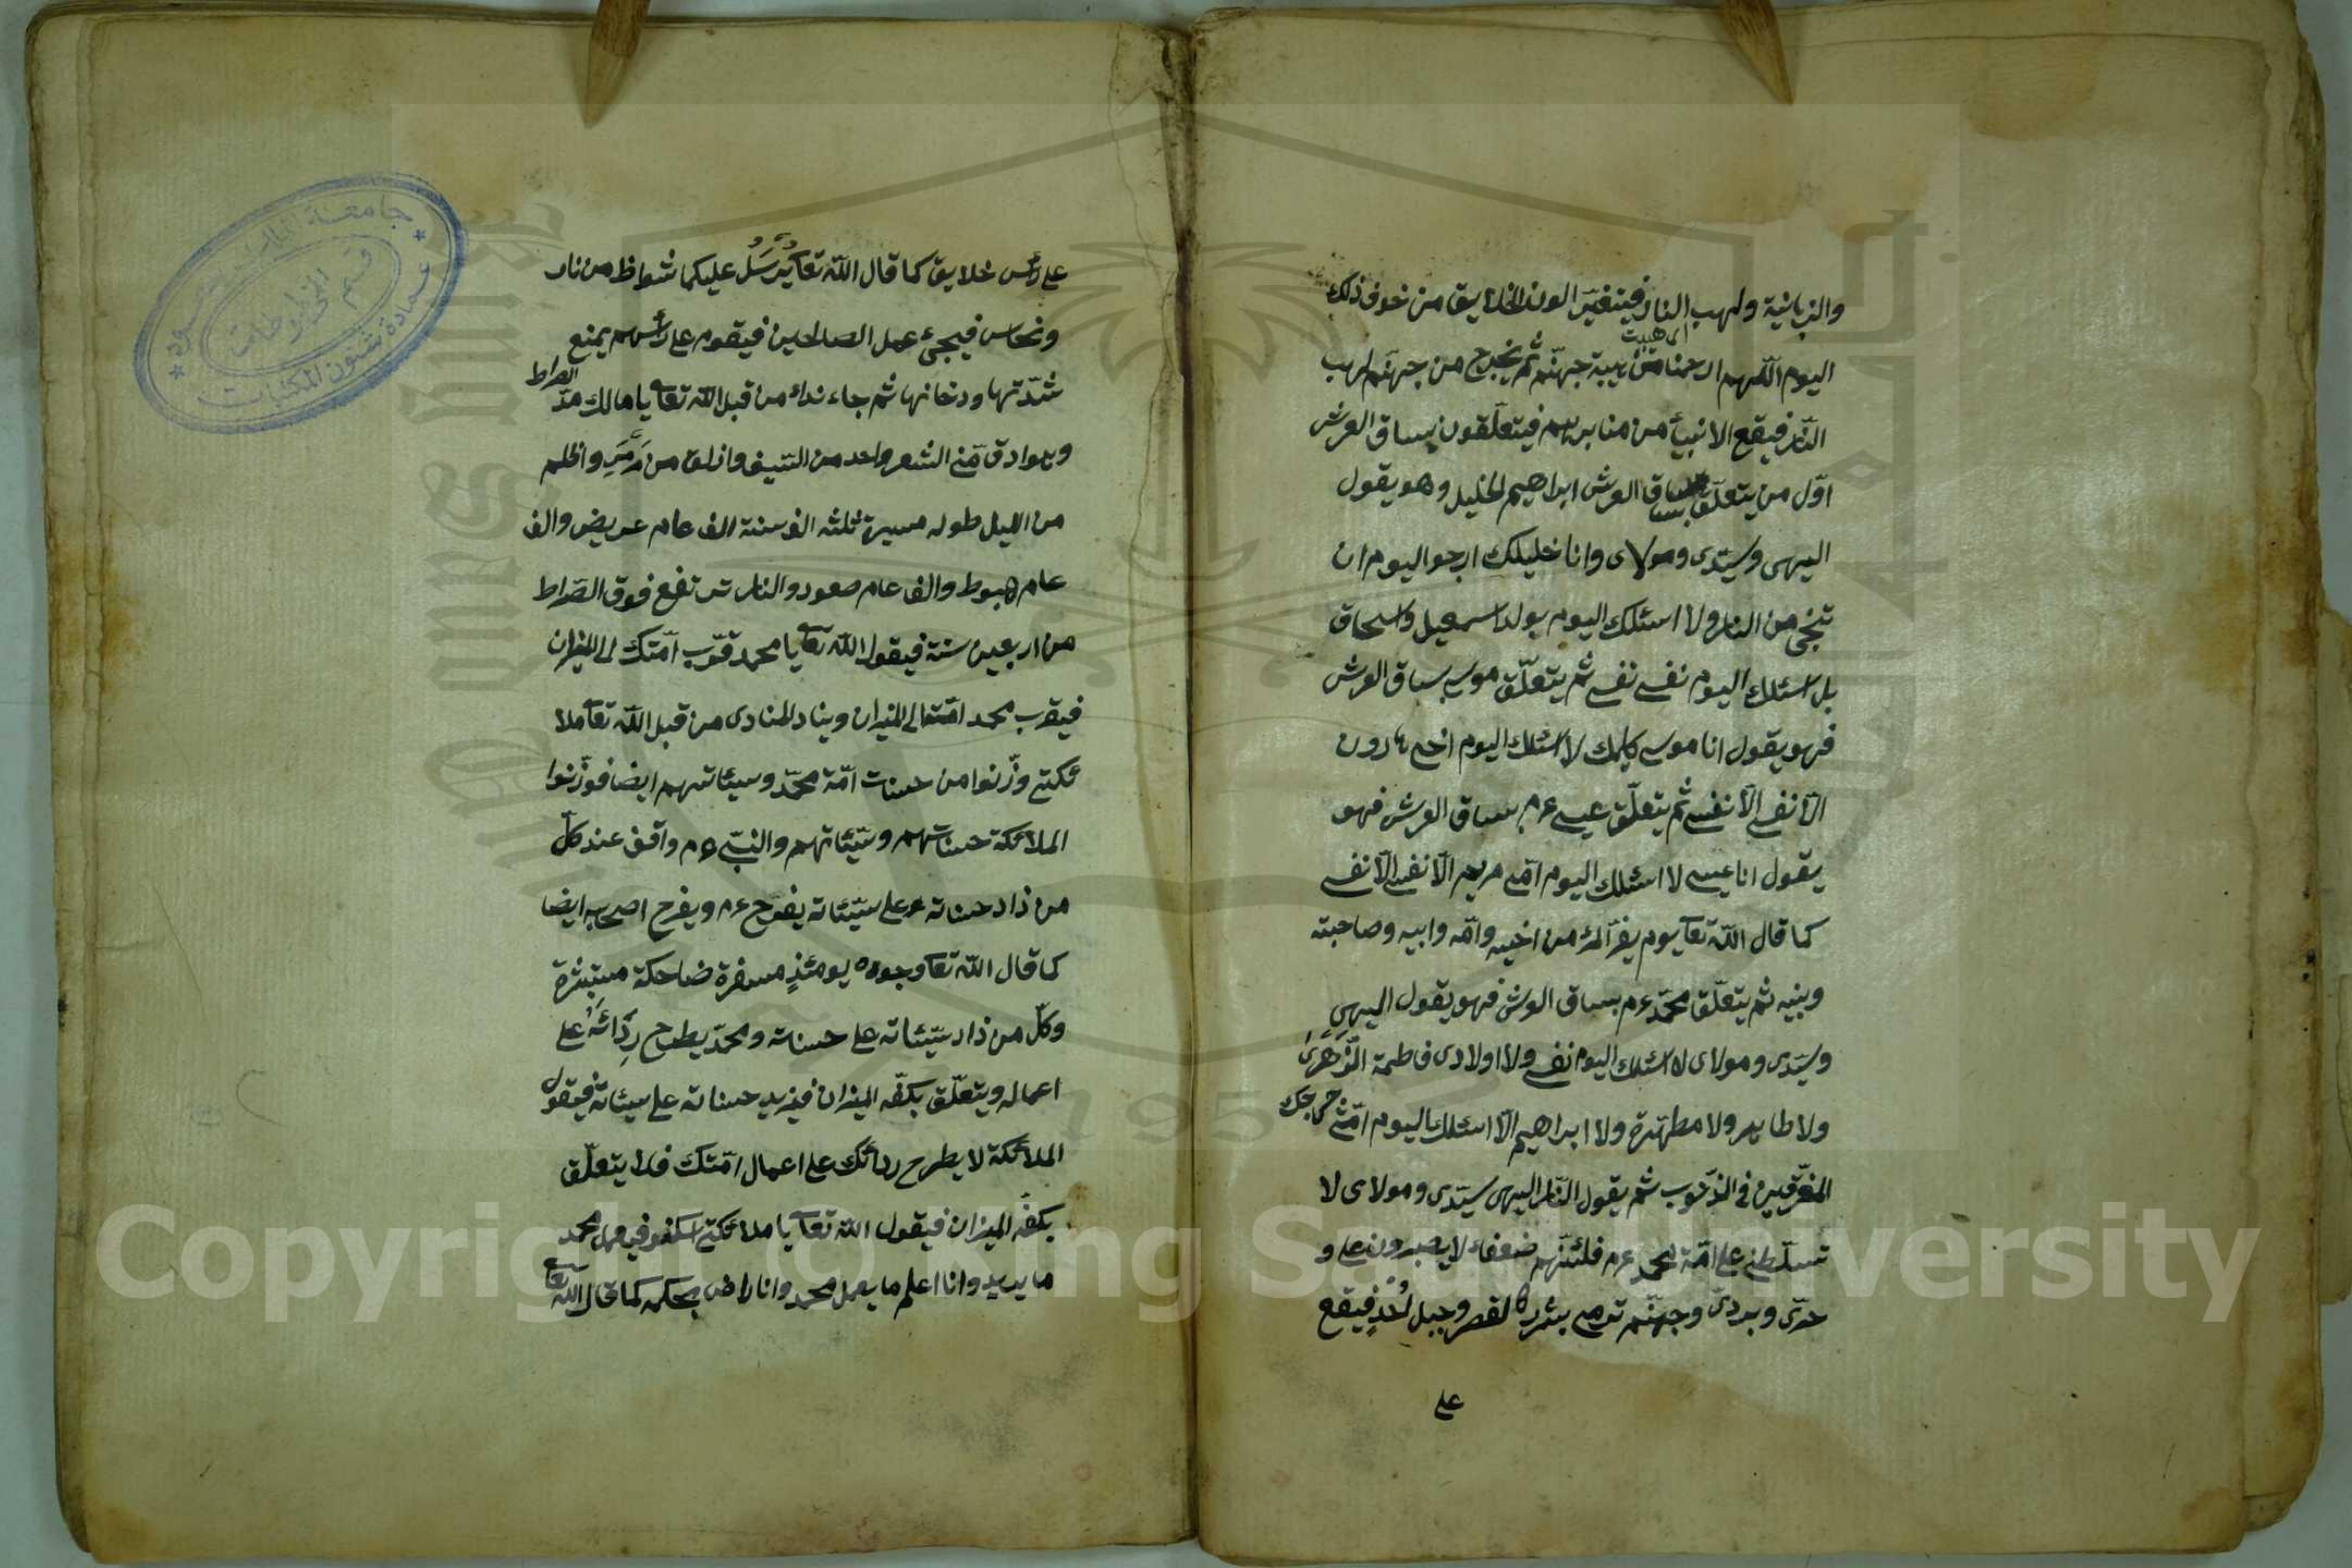 والزبانية ولهب النار فيتغير الون الخلايق من خوف ذلك
اى هيبت
اليوم اللهم ارحمنا من هيبة جهنم ثم يخرج من جهنم لهب
النار فيقع الانبيأ من منابرهم فيتعلقون بساق العرش
اول من يتعلق بساق العرش ابراهيم الخليل وهو يقول
الهى وسيدى ومولاى وانا خليلك ارجو اليوم ان
تنجى من النار ولا اسئلك اليوم بولد اسمعيل واسحاق
بل اسئلك اليوم نفسى نفسى ثم يتعلق موسى بساق العرش
فهو يقول انا موسى كليمك لا اسئلك اليوم اخى هارون
الا نفسى الا نفسى ثم يتعلق عيسى عم بساق العرش فهو
يقول انا عيسى لا اسئلك اليوم امى مريم الا نفسى الا نفسى
كما قال الله تعا يوم يفر المرء من اخيه وامه وابيه وصاحبته
وبنيه ثم يتعلق محمد عم بساق العرش فهو يقول الهى
وسيدى ومولاى لا اسئلك اليوم نفسى ولا اولادى فاطمة الزهرى
ولا طاهر ولا مطهرة ولا ابراهيم الا اسئلك اليوم امتى
المغرقين فى الذنوب ثم يقول النار الهى سيدى ومولاى لا
تسلطنى على امة محمد عم فلئنهم ضعفاء لا يصبرون على و
حرى وبردى وجهنم ترمى بشرر كالقصر وجبل احد فيقع
على
على رأس خلايق كما قال الله تعا يرسل عليكما شواظ من نار
ونحاس فيجئ عمل الصالحين فيقوم على رأسهم يمنع
شدتها ودخانها ثم جاء نداء من قبل الله تعا يا مالك مد الصراط
وهو ادق من الشعر واحد من السيف وازلق من واظلم
من الليل طوله مسيرة ثلثه الف سنة الف عام عريض والف
عام هبوط والف عام صعود والنار ترتفع فوق الصراط
من اربعين سنة فيقول الله تعا يا محمد قرب امتك الى الميزان
فيقرب محمد امته الى الميزان وينادى المنادى من قبل الله تعا ملا
ئكتى وزنوا من حسنات امة محمد وسيئاتهم ايضا فوزنوا
الملائكة حسناتهم وسيئاتهم والنبى عم واقف عند كل
من زاد حسناته على سيئاته يفرح عم ويفرح اصحابه ايضا
كما قال الله تعا وجوه يومئذ مسفرة ضاحكة مستبشرة
وكل من زاد سيئاته على حسناته ومحمد يطرح ردائه على
اعماله ويتعلق بكفه الميزان فيزيد حسناته على سيئاته فيقول
الملائكة لا يطرح ردائك على اعمال امتك فلا يتعلق
بكفه الميزان فيقول الله تعا يا ملائكتى محمد
ما يريد وانا اعلم ما يعمل محمد وانا راض بحكمه كما قال الله تعا
قسم المخطوطات
عمادة شئون المكتبات
Copyright © King Saud University